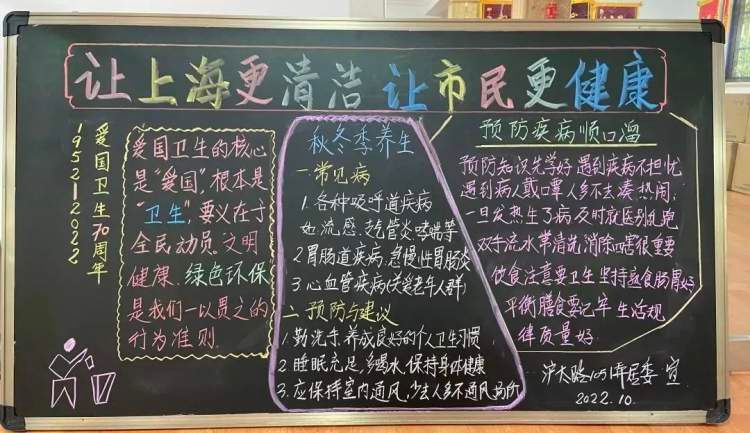 让上海更清洁 让市民更健康
爱国卫生70周年
1952—2022
爱国卫生的核心
是“爱国”,根本是
“卫生”,要义在于
全民动员.文明
健康.绿色环保
是我们一以贯之的
行为准则.
秋冬季养生
一.常见病
1.各种呼吸道疾病
如流感.支气管炎哮喘等
2.胃肠道疾病,急慢性胃肠炎
3.心血管疾病(关爱老年人群)
二.预防与建议
1.勤洗手.养成良好的个人卫生习惯.
2.睡眠充足,多喝水,保持身体健康
3.应保持室内通风,少去人多不通风场所
预防疾病顺口溜
预防知识先学好 遇到疾病不担忧
遇到病人戴口罩 人多不去凑热闹.
一旦发热生了病 及时就医别乱跑
双手流水常清洗 消除危害很重要
饮食注意要卫生 坚持熟食肠胃好
平衡膳食要记牢 生活规
律质量好.
沪太路1051弄居委 宣
2022.10.